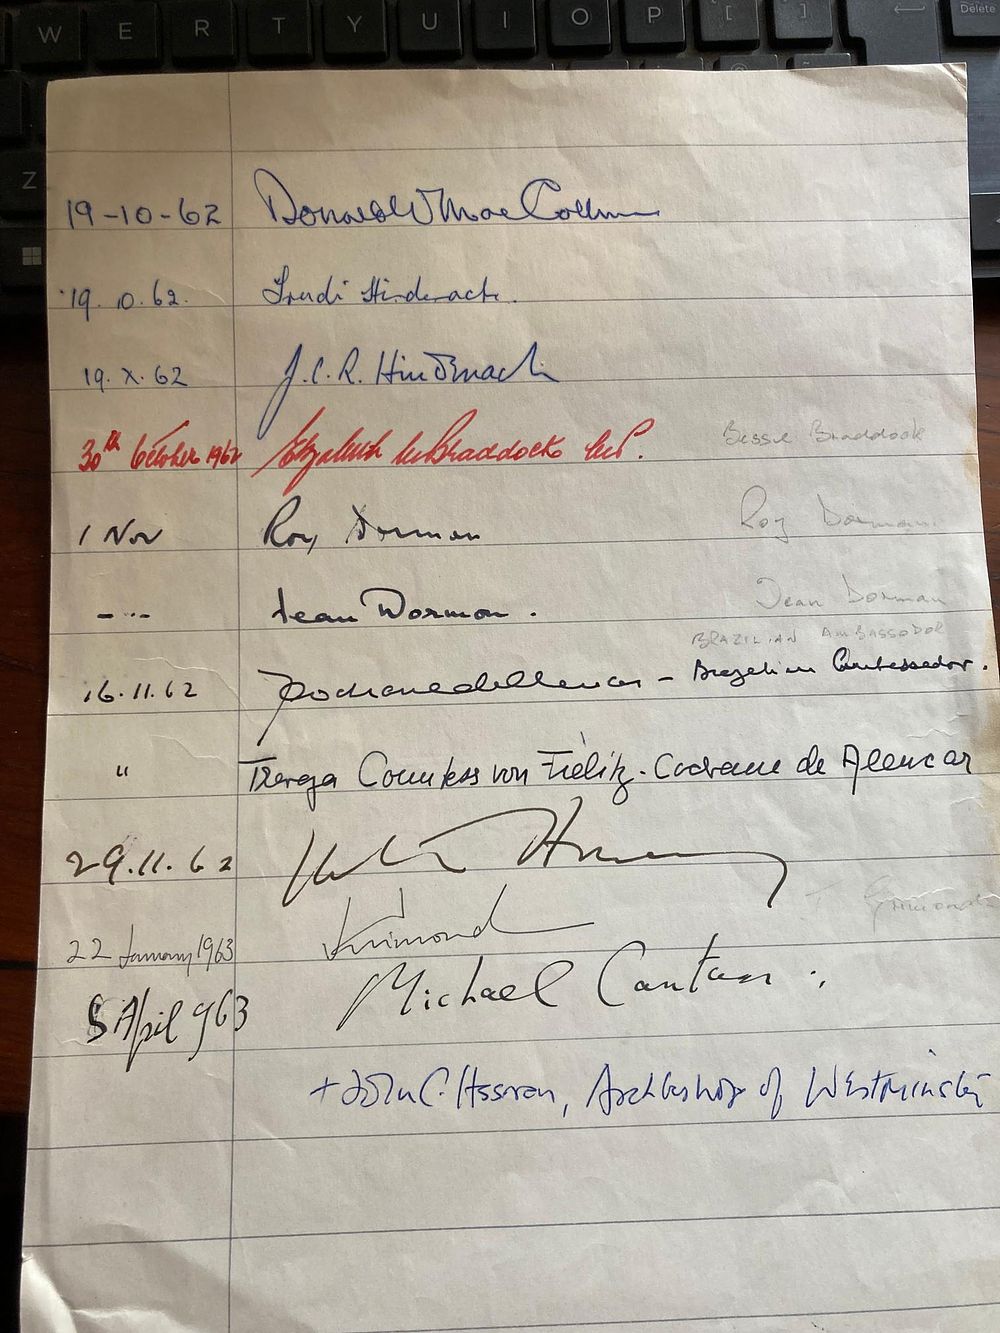 W E R T Y U I O P [ ]
Delete
Z
19-10-62 Donald W Mac
19.10.62. Trudi
19.X.62 J.C.R.
30th October 1962 Elizabeth M Braddock M.P. Bessie Braddock
1 Nov Roy Dorman Roy Dorman
Jean Dorman. Jean Dorman
BRAZILIAN AMBASSADOR
16.11.62 - Brazilian Ambassador.
" Countess von Fielitz-Cochrane de Alencar
29.11.62
J Grimond
22 January 1963 J Grimond
5 April 963 Michael Cantuar:
+ John C. Heenan, Archbishop of Westminster